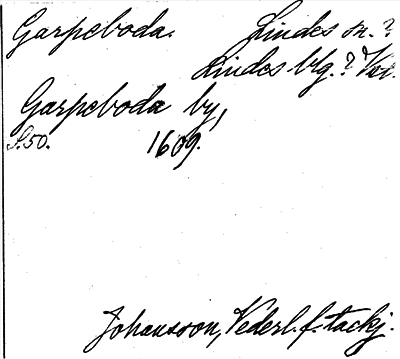 Garpeboda. Lindes sn.?
Lindes blg.? Vsl.
Garpeboda by,
S.50. 1609.
Johansson, Vederl. f. tackj.